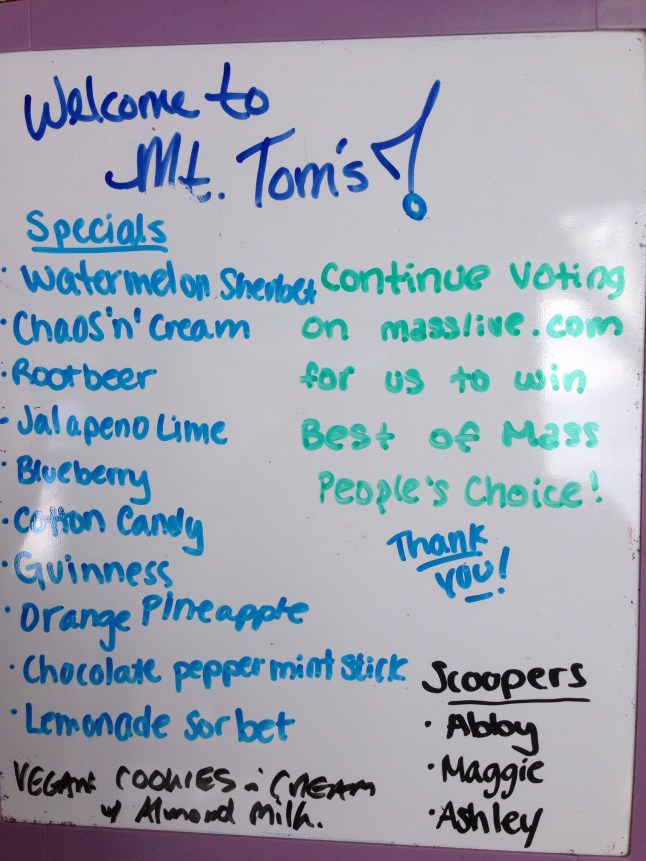 Welcome to
Mt. Tom's!
Specials
• Watermelon Sherbet
• Chaos 'n' Cream
• Rootbeer
• Jalapeno Lime
• Blueberry
• Cotton Candy
• Guinness
• Orange Pineapple
• Chocolate peppermint stick
• Lemonade Sorbet
VEGAN COOKIES n CREAM
w Almond Milk.
Continue Voting
on masslive.com
for us to win
Best of Mass
People's Choice!
Thank
you!
Scoopers
• Abby
• Maggie
• Ashley